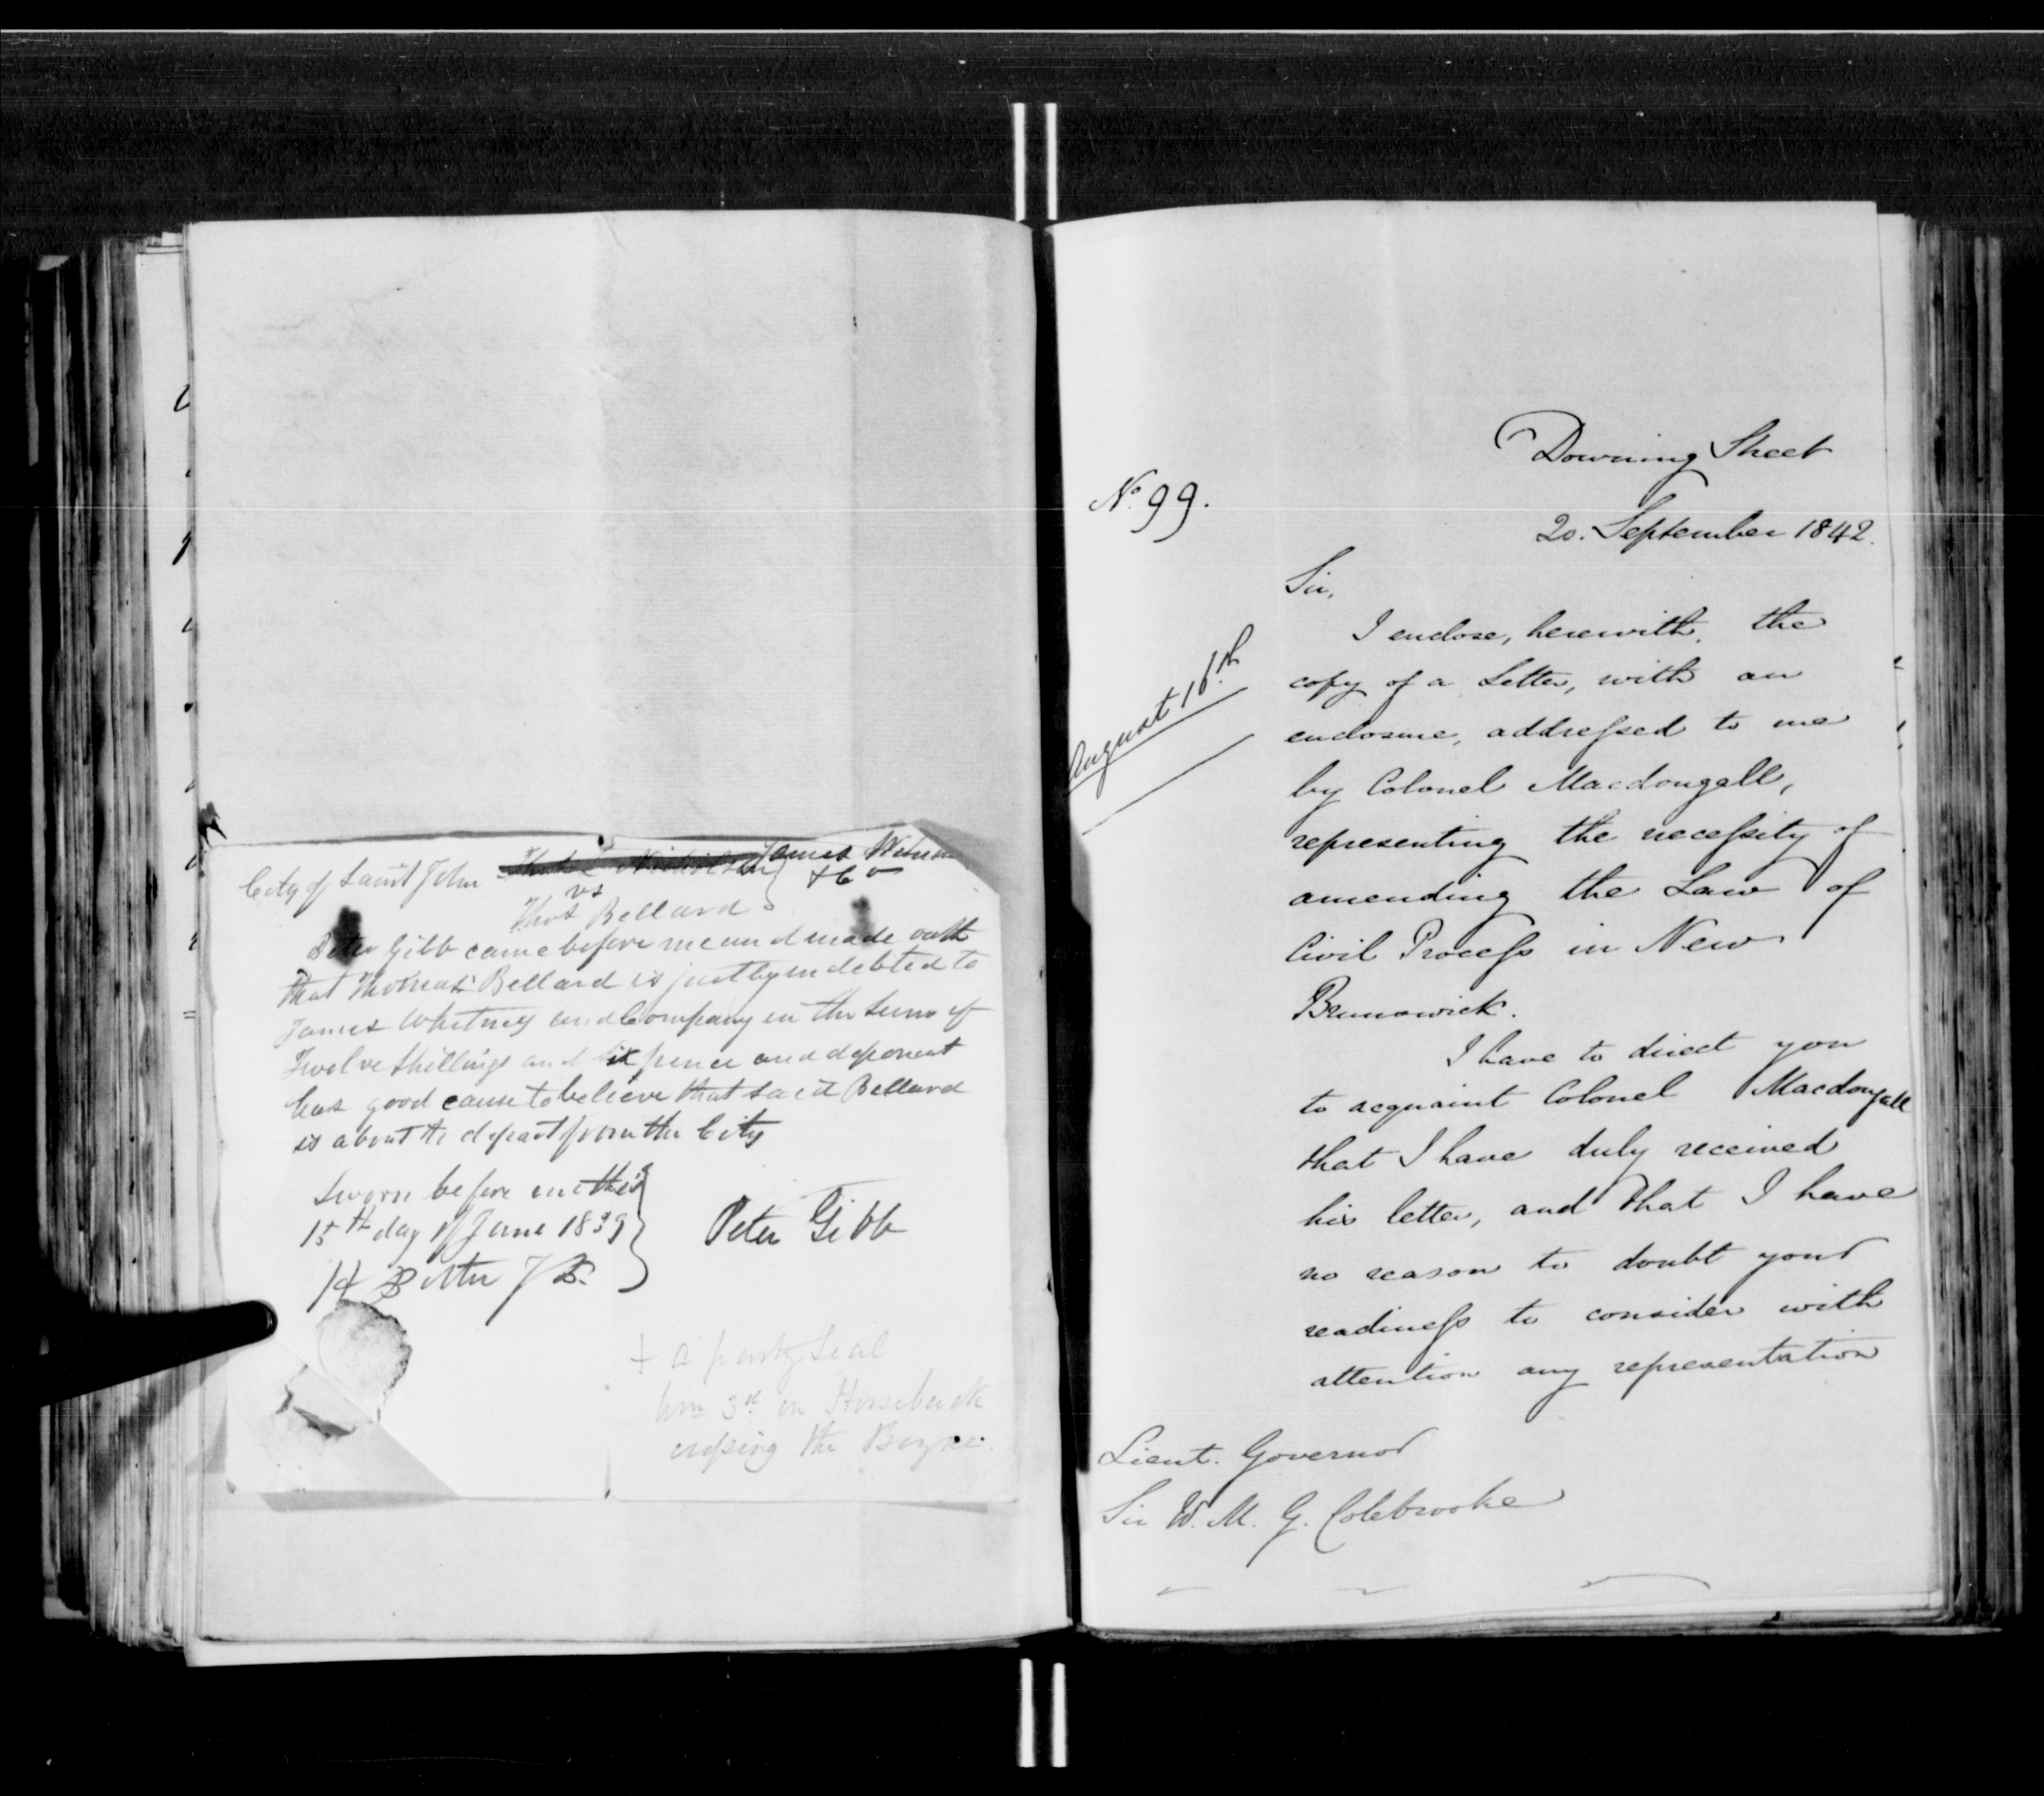 City of Saint John James Whitney
vs & Co
Thos Bellard
Peter Gibb came before me and made oath
that Thomas Bellard is justly indebted to
James Whitney and Company in the sum of
Twelve Shillings and six pence and deponent
has good cause to believe that said Bellard
is about to depart from the City
Sworn before me this
15th day of June 1839
Peter Gibb
H Porter J P.
+ a party Seal
Wm 3rd on Horseback
crossing the Boyne.
Downing Street
No. 99.
20. September 1842.
Sir,
August 16th
I enclose, herewith, the
copy of a Letter, with an
enclosure, addressed to me
by Colonel Macdougall,
representing the necessity of
amending the Law of
Civil Process in New
Brunswick.
I have to direct you
to acquaint Colonel Macdougall
that I have duly received
his letter, and that I have
no reason to doubt your
readiness to consider with
attention any representation
Lieut. Governor
Sir W. M. G. Colebrooke